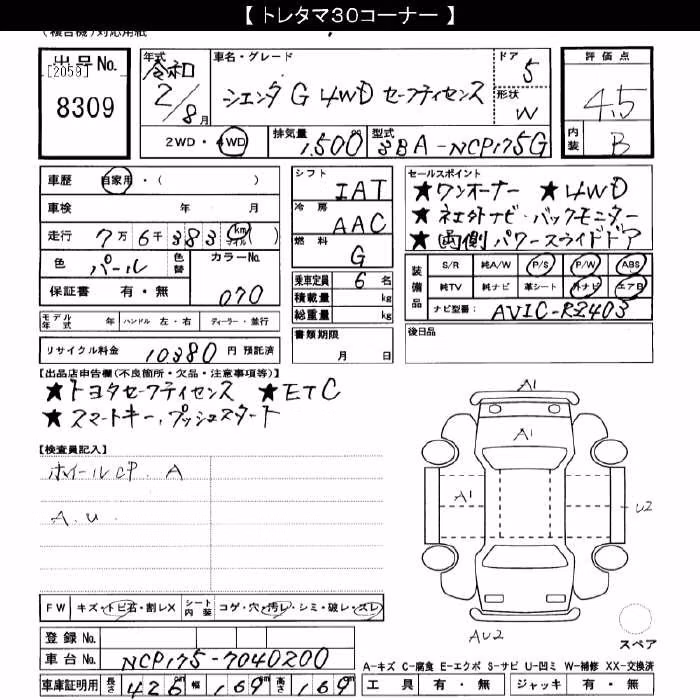 【 トレタマ30コーナー 】
(複合機)対応用紙
出品No.
[2059]
8309
年式 令和 2/8月
車名・グレード
シエンタ G 4WD セーフティセンス
ドア 5
形状 W
評価点
4.5
内装 B
2WD・4WD
排気量 1,500cc
型式 3BA-NCP175G
車歴 自家用・( )
車検 年 月
走行 7万6千383 km マイル ( )
色 パール 色替
カラーNo. 070
保証書 有・無
シフト IAT
冷房 AAC
燃料 G
乗車定員 6名
積載量 kg
総重量 kg
セールスポイント
★ワンオーナー ★4WD
★ネエ外ナビ・バックモニター
★両側パワースライドドア
装備品
S/R 純A/W P/S P/W ABS
純TV 純ナビ 革シート 外ナビ エアB
ナビ型番: AVIC-RZ403
モデル年式 年 ハンドル 左・右 ディーラー・並行
書類期限
月 日
後日品
リサイクル料金 10380円 預託済
【出品店申告欄(不良箇所・欠品・注意事項等)】
★トヨタセーフティセンス ★ETC
★スマートキー,プッシュスタート
【検査員記入】
ホイールCP. A
A.U.
A1
A1
A1
U2
AU2
スペア
FW キズ・トビ石・割レX
シート内装 コゲ・穴・汚レ・シミ・破レ・スレ
登録No.
車台No. NCP175-7040200
A-キズ C-腐食 E-エクボ S-サビ U-凹ミ W-補修 XX-交換済
車庫証明用 長さ 426cm 幅 169cm 高さ 169cm
工具 有・無 ジャッキ 有・無